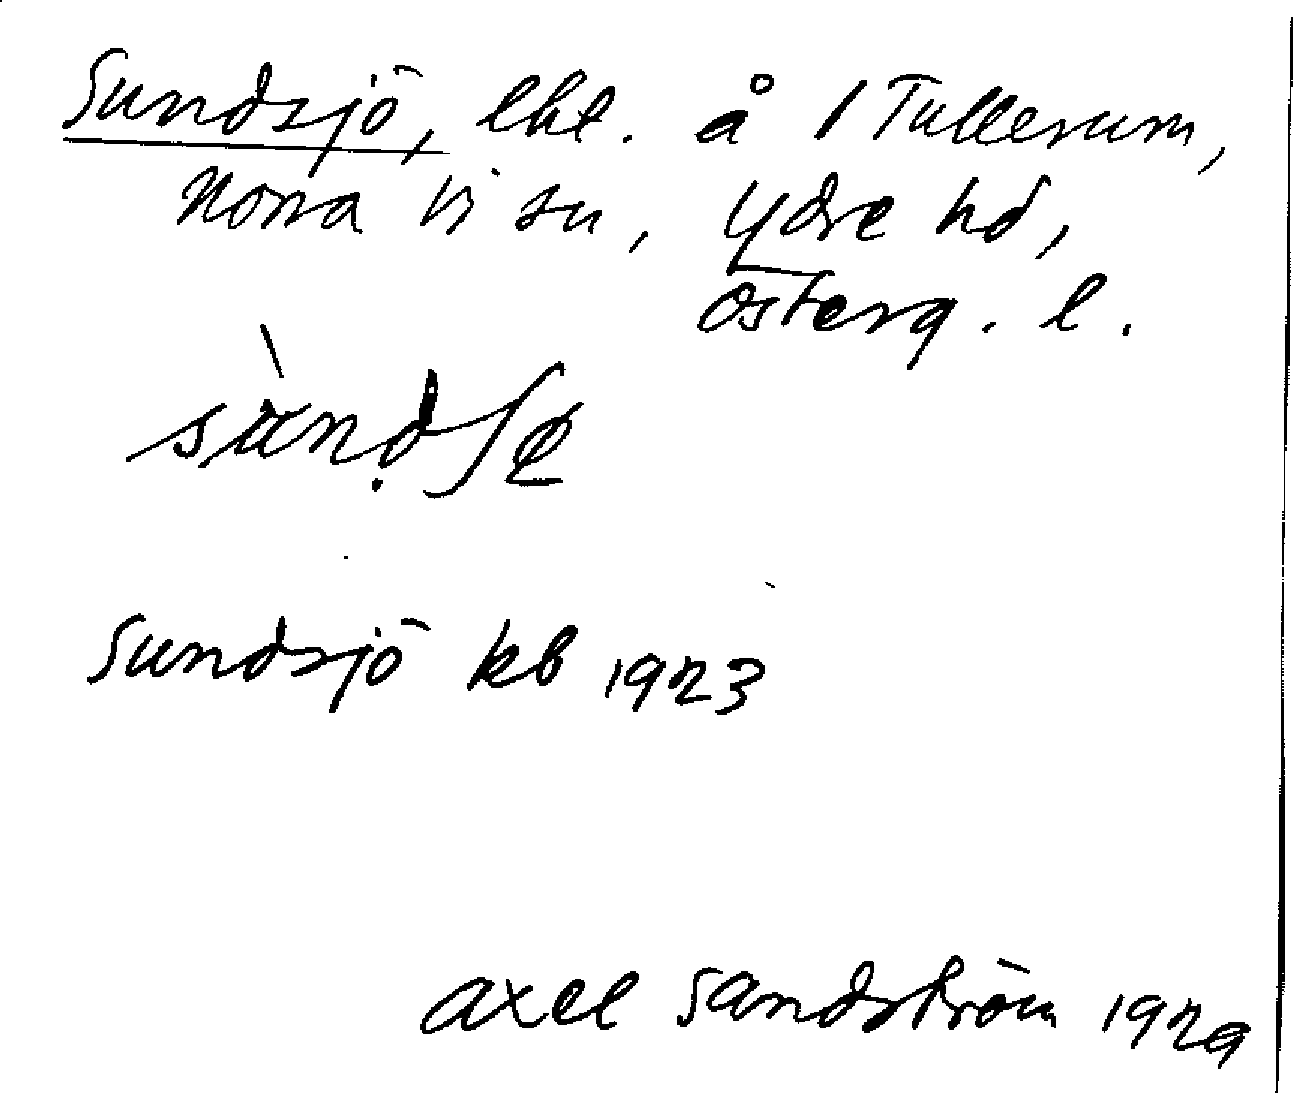 Sundsjö, lht. å 1 Tullerum,
Norra Vi sn, Ydre hd,
Österg. l.
Sundsjö kb 1923
Axel Sandström 1929